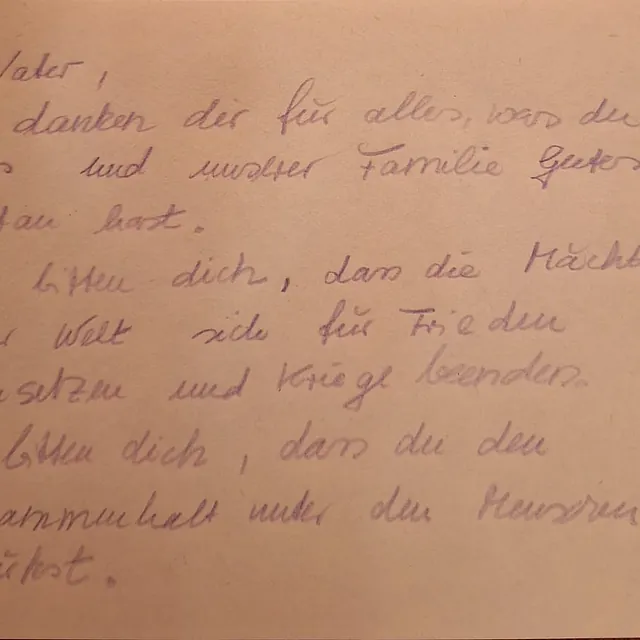 Vater,
danken dir für alles, was du
s und unserer Familie Gutes
tan hast.
bitten dich, dass die Mächt
r Welt sich für Frieden
nsetzen und Kriege beenden.
bitten dich, dass du den
ammenhalt unter den Menschen
rkst.